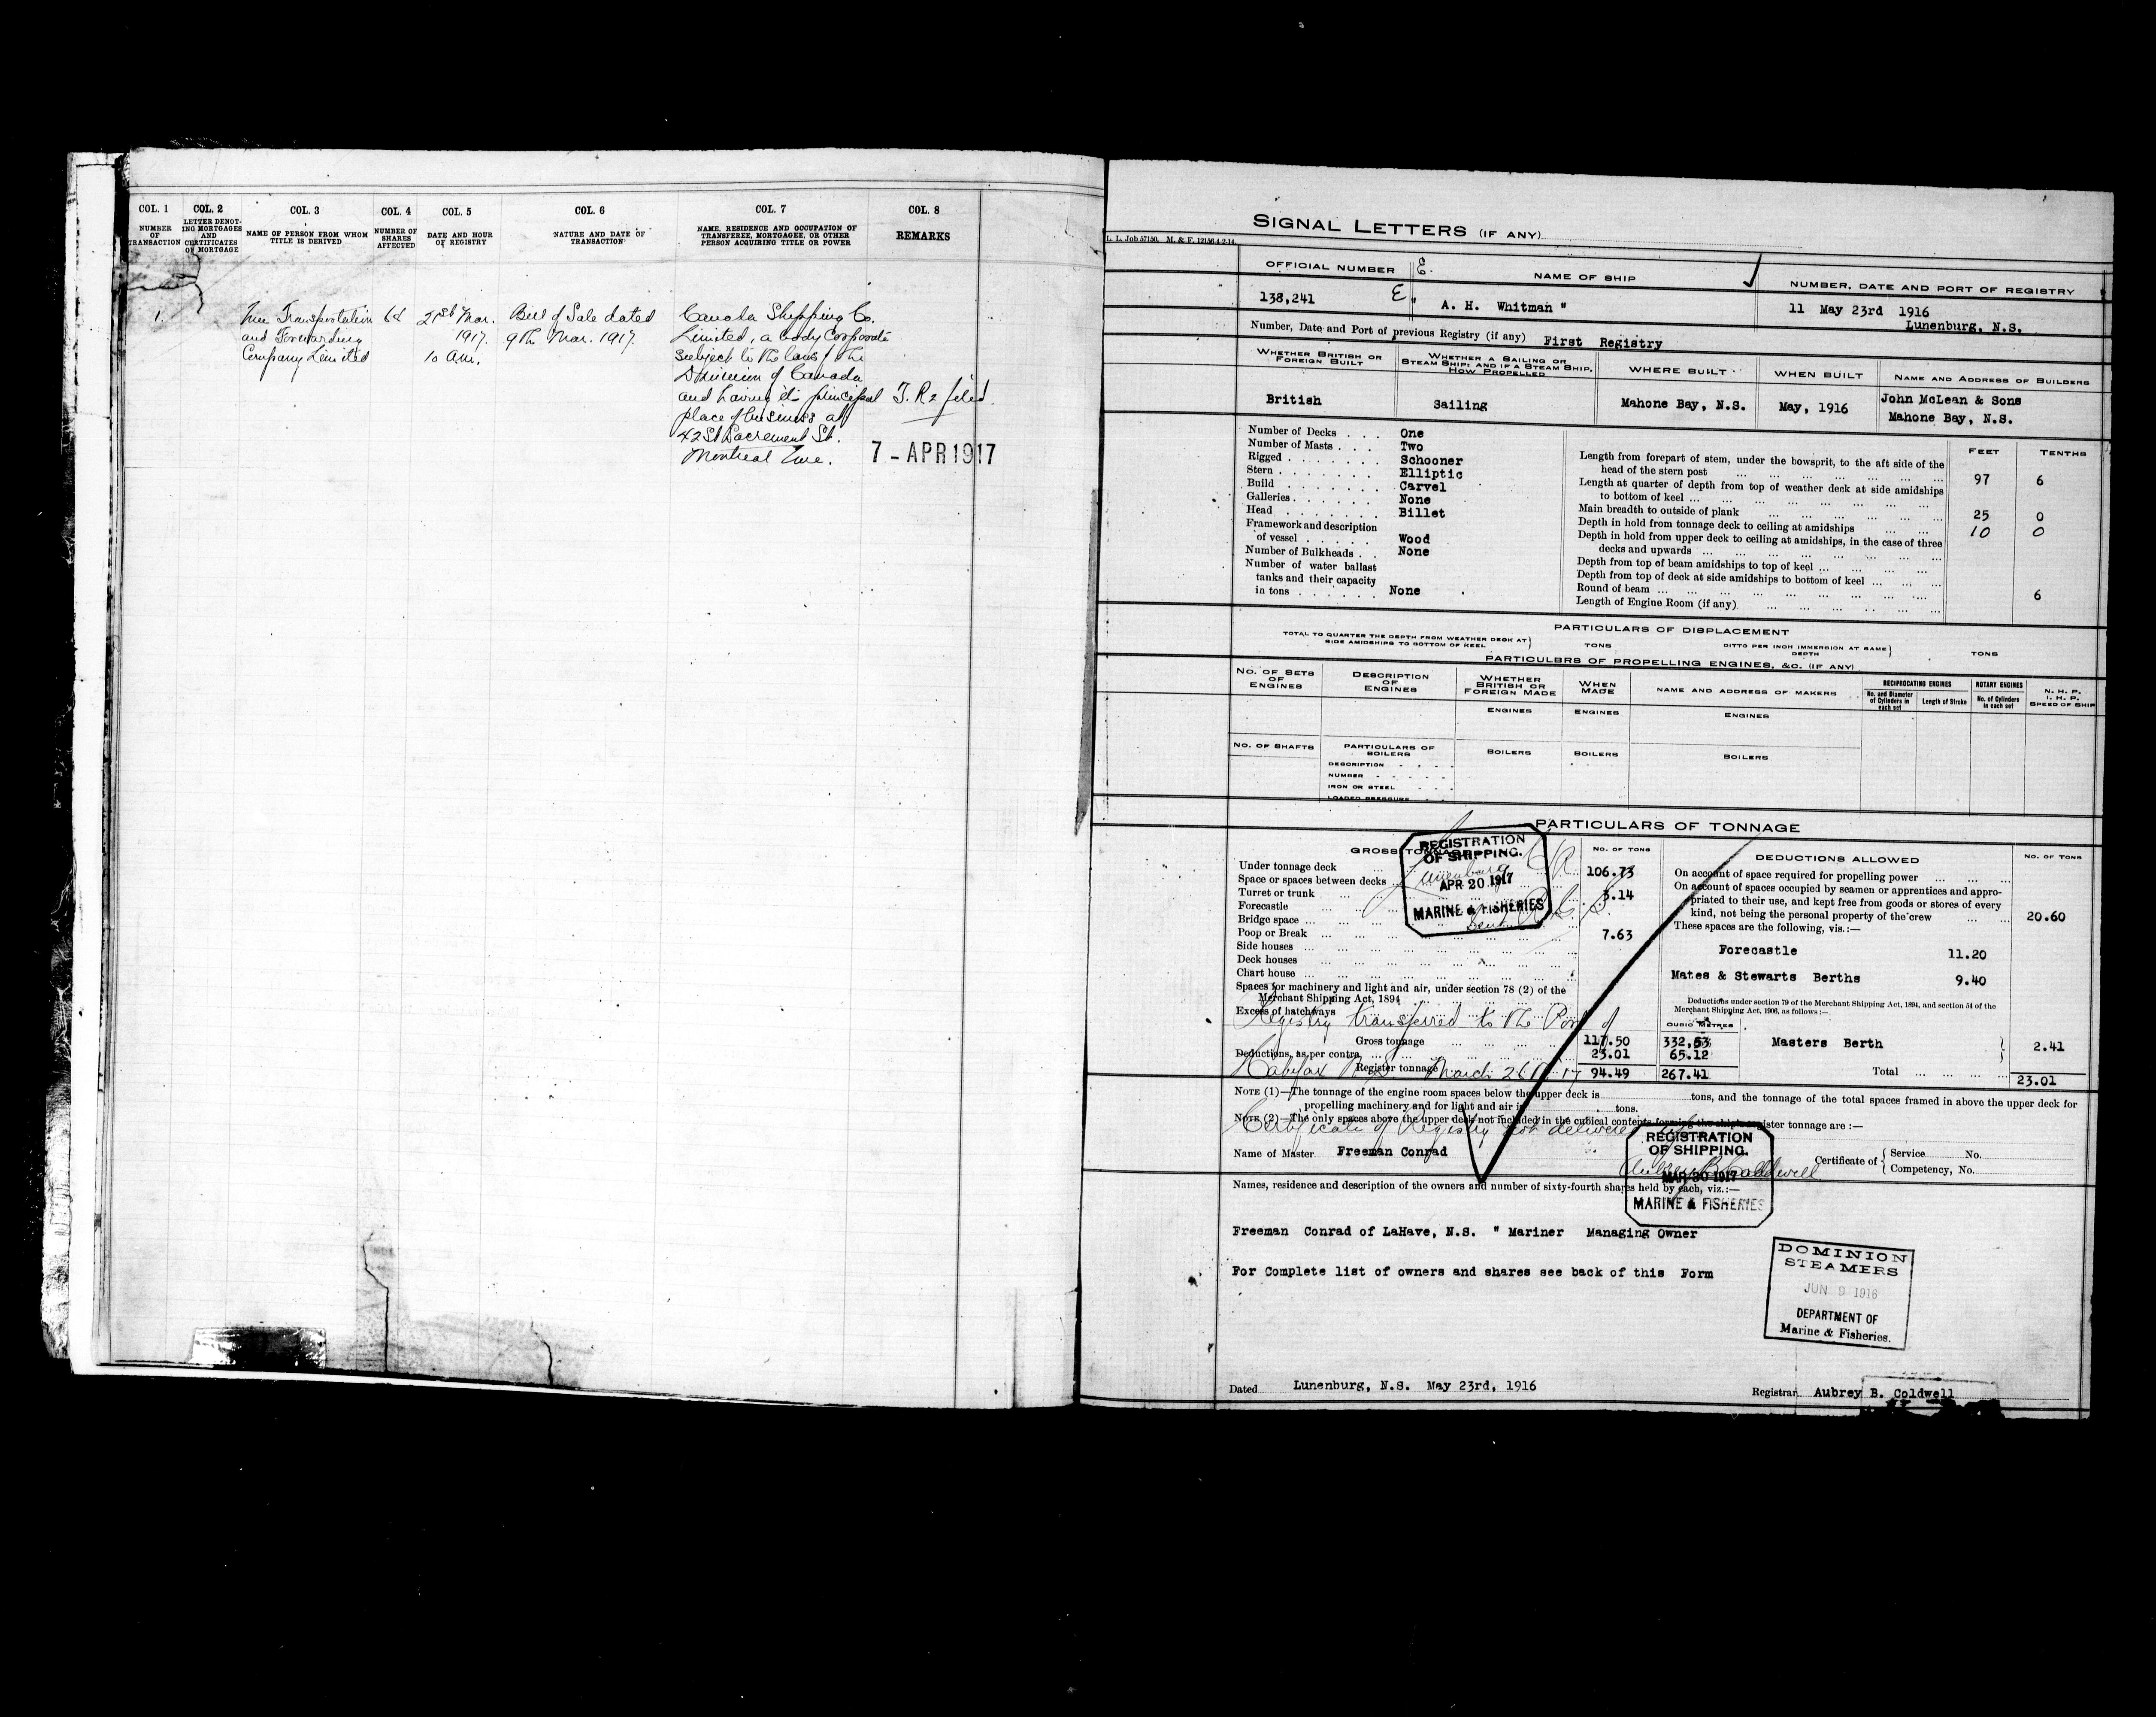 COL. 1
NUMBER OF TRANSACTION
COL. 2
LETTER DENOTING MORTGAGES AND CERTIFICATES OF MORTGAGE
COL. 3
NAME OF PERSON FROM WHOM TITLE IS DERIVED
COL. 4
NUMBER OF SHARES AFFECTED
COL. 5
DATE AND HOUR OF REGISTRY
COL. 6
NATURE AND DATE OF TRANSACTION
COL. 7
NAME, RESIDENCE AND OCCUPATION OF TRANSFEREE, MORTGAGEE, OR OTHER PERSON ACQUIRING TITLE OR POWER
COL. 8
REMARKS
1.
Transportation
and Forwarding
Company Limited
64
21st Mar.
1917.
10 am.
Bill of Sale dated
9th Mar. 1917.
Canada Shipping Co.
Limited, a body Corporate
subject to the laws of the
Dominion of Canada
and having its principal
place of business at
42 St Sacrement St.
Montreal Que.
T. R 2 filed
7 - APR 1917
SIGNAL LETTERS (IF ANY)
L. L. Job 57150. M. & F. 12156 4-2-14.
OFFICIAL NUMBER
NAME OF SHIP
NUMBER, DATE AND PORT OF REGISTRY
138,241
" A. H. Whitman "
11 May 23rd 1916
Lunenburg, N.S.
Number, Date and Port of previous Registry (if any) First Registry
WHETHER BRITISH OR FOREIGN BUILT
WHETHER A SAILING OR STEAM SHIP; AND IF A STEAM SHIP, HOW PROPELLED
WHERE BUILT
WHEN BUILT
NAME AND ADDRESS OF BUILDERS
British
Sailing
Mahone Bay, N.S.
May, 1916
John McLean & Sons
Mahone Bay, N.S.
Number of Decks . . . One
Number of Masts . . . Two
Rigged . . . Schooner
Stern . . . Elliptic
Build . . . Carvel
Galleries . . . None
Head . . . Billet
Framework and description
of vessel . . . Wood
Number of Bulkheads . . None
Number of water ballast
tanks and their capacity
in tons . . . None
FEET TENTHS
Length from forepart of stem, under the bowsprit, to the aft side of the
head of the stern post ... 97 6
Length at quarter of depth from top of weather deck at side amidships
to bottom of keel ...
Main breadth to outside of plank ... 25 0
Depth in hold from tonnage deck to ceiling at amidships ... 10 0
Depth in hold from upper deck to ceiling at amidships, in the case of three
decks and upwards ...
Depth from top of beam amidships to top of keel ...
Depth from top of deck at side amidships to bottom of keel ...
Round of beam ... 6
Length of Engine Room (if any) ...
PARTICULARS OF DISPLACEMENT
TOTAL TO QUARTER THE DEPTH FROM WEATHER DECK AT SIDE AMIDSHIPS TO BOTTOM OF KEEL } TONS
DITTO PER INCH IMMERSION AT SAME DEPTH } TONS
PARTICULBRS OF PROPELLING ENGINES, &C. (IF ANY)
NO. OF SETS OF ENGINES
DESCRIPTION OF ENGINES
WHETHER BRITISH OR FOREIGN MADE
WHEN MADE
NAME AND ADDRESS OF MAKERS
RECIPROCATING ENGINES
No. and Diameter of Cylinders in each set
Length of Stroke
ROTARY ENGINES
No. of Cylinders in each set
N. H. P.
I. H. P.
SPEED OF SHIP
ENGINES ENGINES ENGINES
NO. OF SHAFTS
PARTICULARS OF BOILERS
BOILERS BOILERS BOILERS
DESCRIPTION
NUMBER
IRON OR STEEL
LOADED PRESSURE
PARTICULARS OF TONNAGE
GROSS TONNAGE
NO. OF TONS
Under tonnage deck ... 106.73
Space or spaces between decks ...
Turret or trunk ... 3.14
Forecastle ...
Bridge space ...
Poop or Break ... 7.63
Side houses ...
Deck houses ...
Chart house ...
Spaces for machinery and light and air, under section 78 (2) of the
Merchant Shipping Act, 1894
Excess of hatchways
Gross tonnage ... 117.50 332,53
Deductions, as per contra ... 23.01 65.12
Register tonnage 94.49 267.41
CUBIC METRES
REGISTRATION
OF SHIPPING.
APR 20 1917
MARINE & FISHERIES
Lunenburg
DEDUCTIONS ALLOWED
NO. OF TONS
On account of space required for propelling power ...
On account of spaces occupied by seamen or apprentices and appro-
priated to their use, and kept free from goods or stores of every
kind, not being the personal property of the crew ... 20.60
These spaces are the following, vis.:—
Forecastle 11.20
Mates & Stewarts Berths 9.40
Deductions under section 79 of the Merchant Shipping Act, 1894, and section 54 of the
Merchant Shipping Act, 1906, as follows:—
Masters Berth 2.41
Total ... 23.01
Registry transferred to the Port of
Halifax N.S. March 26th 1917
Certificate of Registry not delivered up
Aubrey B. Coldwell
NOTE (1)—The tonnage of the engine room spaces below the upper deck is tons, and the tonnage of the total spaces framed in above the upper deck for
propelling machinery and for light and air is tons.
NOTE (2)—The only spaces above the upper deck not included in the cubical contents forming the ship's register tonnage are :—
Name of Master Freeman Conrad
Certificate of { Service No.
Competency, No.
REGISTRATION
OF SHIPPING.
MAR 30 1917
MARINE & FISHERIES
Names, residence and description of the owners and number of sixty-fourth shares held by each, viz.:—
Freeman Conrad of LaHave, N.S. " Mariner Managing Owner
For Complete list of owners and shares see back of this Form
DOMINION
STEAMERS
JUN 9 1916
DEPARTMENT OF
Marine & Fisheries.
Dated Lunenburg, N.S. May 23rd, 1916
Registrar Aubrey B. Coldwell